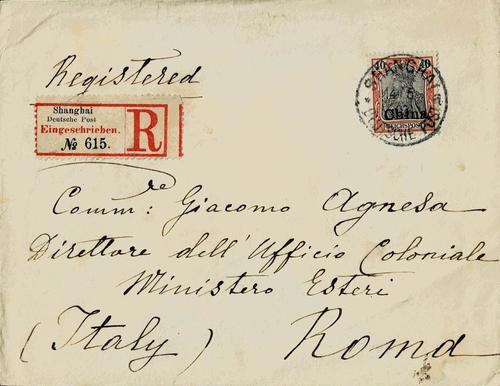 Registered
Shanghai
Deutsche Post
Eingeschrieben.
№ 615.
R
40 40
China
REICHSPOST
SHANGHAI
DEUTSCHE POST
Comm:re Giacomo Agnesa
Direttore dell'Ufficio Coloniale
Ministero Esteri
(Italy) Roma